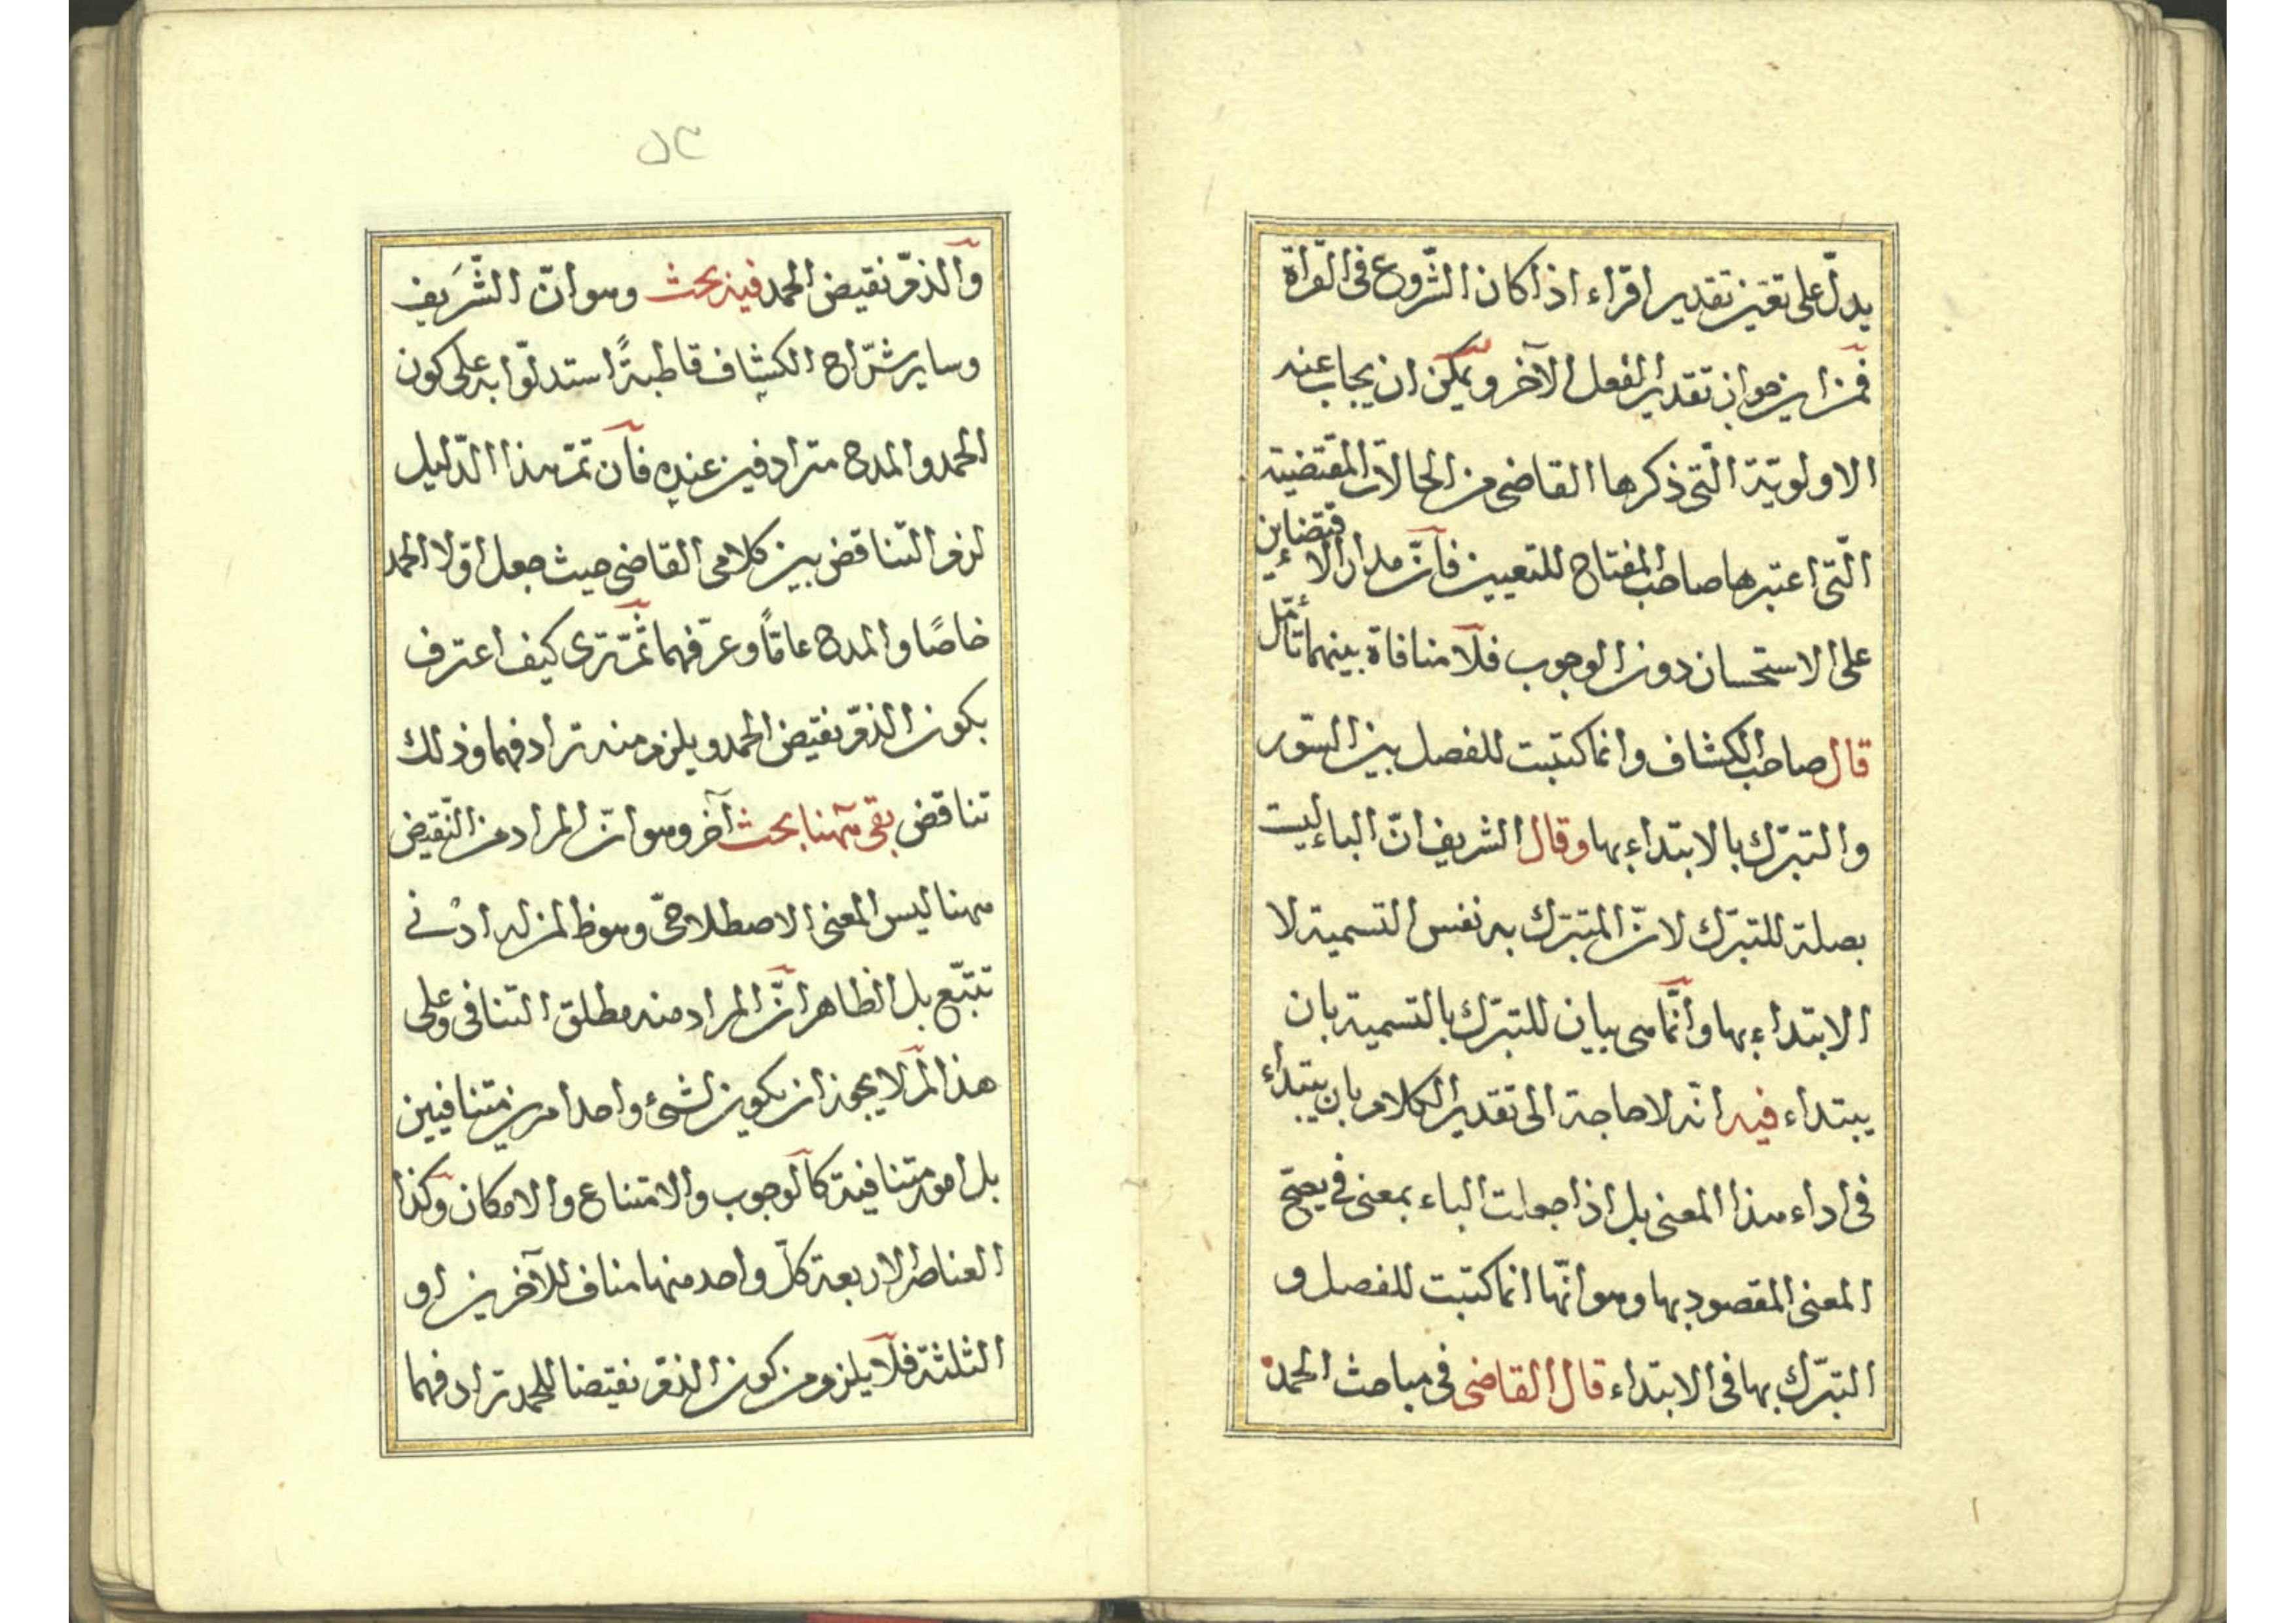 يدلّ على تعيّن تقدير اقراء اذا كان الشّروع فى القراة
فمن اين جواز تقدير الفعل الآخر ويمكن ان يجاب عنه
الاولويّة الّتى ذكرها القاضى من الحالات المقتضية
الّتى اعتبرها صاحب المفتاح للتعيين فانّ مدار الاقتضاءين
على الاستحسان دون الوجوب فلا منافاة بينهما تأمّل
قال صاحب الكشاف وانما كتبت للفصل بين السّور
والتبرّك بالابتداء بها وقال الشريف انّ الباء ليست
بصلة للتبرّك لانّ المتبرّك به نفس التسمية لا
الابتداء بها وانّما هى بيان للتبرّك بالتسمية بان
يبتداء فيه انّه لا حاجة الى تقدير الكلام بان يبتداء
فى اداء هذا المعنى بل اذا جعلت الباء بمعنى فى يصحّ
المعنى المقصود بها وهو انّها انما كتبت للفصل و
التبرّك بها فى الابتداء قال القاضى فى مباحث الحمد
٥٣
والذمّ نقيض الحمد فيه بحث وهو انّ الشّريف
وساير شرّاح الكشاف قاطبةً استدلّوا به على كون
الحمد والمدح مترادفين عنده فان تمّ هذا الدّليل
لزم التناقض بين كلامى القاضى حيث جعل اوّلا الحمد
خاصًا والمدح عامًّا وعرّفهما ثمّ ترى كيف اعترف
بكون الذمّ نقيض الحمد ويلزم منه ترادفهما وذلك
تناقض بقى ههنا بحث آخر وهو انّ المراد من النّقيض
ههنا ليس المعنى الاصطلاحىّ وهو ظ لمن له ادنى
تتبّع بل الظاهر انّ المراد منه مطلق التنافى وعلى
هذا لم لا يجوز ان يكون لشىء واحد امرين متنافيين
بل امور متنافية كالوجوب والامتناع والامكان وكذا
العناصر الاربعة كلّ واحد منها مناف للآخرين او
الثلثة فلا يلزم من كون الذمّ نقيضا للحمد ترادفهما